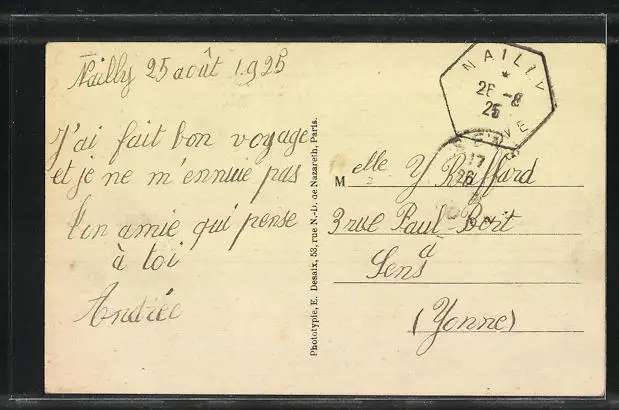 Nailly 25 août 1925
J'ai fait bon voyage
et je ne m'ennuie pas
Ton amie qui pense
à toi
Andrée
Phototypie, E. Desaix, 53, rue N.-D. de Nazareth, Paris.
NAILLY
26 -8
25
YONNE
SENS
17
26
Melle Y Raffard
3 rue Paul-Bert
à
Sens
(Yonne)